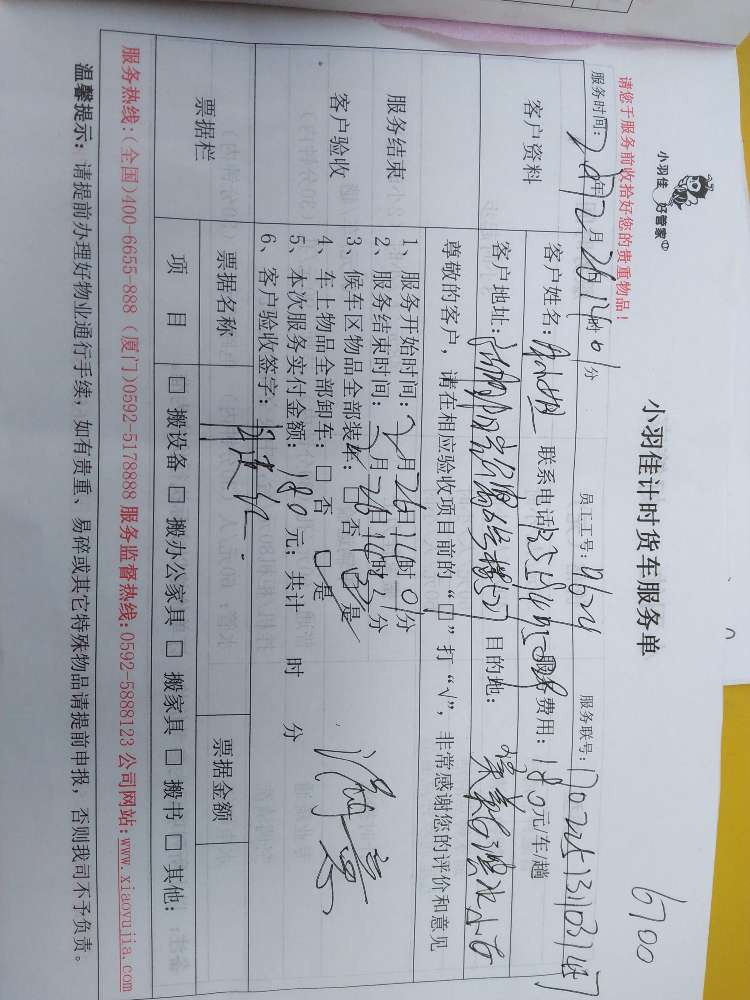 6700
小羽佳 好管家
小羽佳计时货车服务单
请您于服务前收拾好您的贵重物品！
服务时间： 年 2月26日14时01分 员工工号：9624 服务联号：
客户资料
客户姓名： 联系电话： 服务费用：180元/车/趟
客户地址： 目的地：
尊敬的客户，请在相应验收项目前的“□”打“√”，非常感谢您的评价和意见
服务结束
客户验收
1、服务开始时间：2月26日14时01分
2、服务结束时间：2月26日16时 分
3、候车区物品全部装车：□ 否 □ 是
4、车上物品全部卸车：□ 否 □ 是
5、本次服务实付金额：180元；共计 时 分
6、客户验收签字：
票据栏 票据名称 票据金额
项 目 □ 搬设备 □ 搬办公家具 □ 搬家具 □ 搬书 □ 其他：
服务热线：(全国)400-6655-888 (厦门)0592-5178888 服务监督热线：0592-5888123 公司网站：www.xiaoyujia.com
温馨提示：请提前办理好物业通行手续、如有贵重、易碎或其它特殊物品请提前申报，否则我司不予负责。